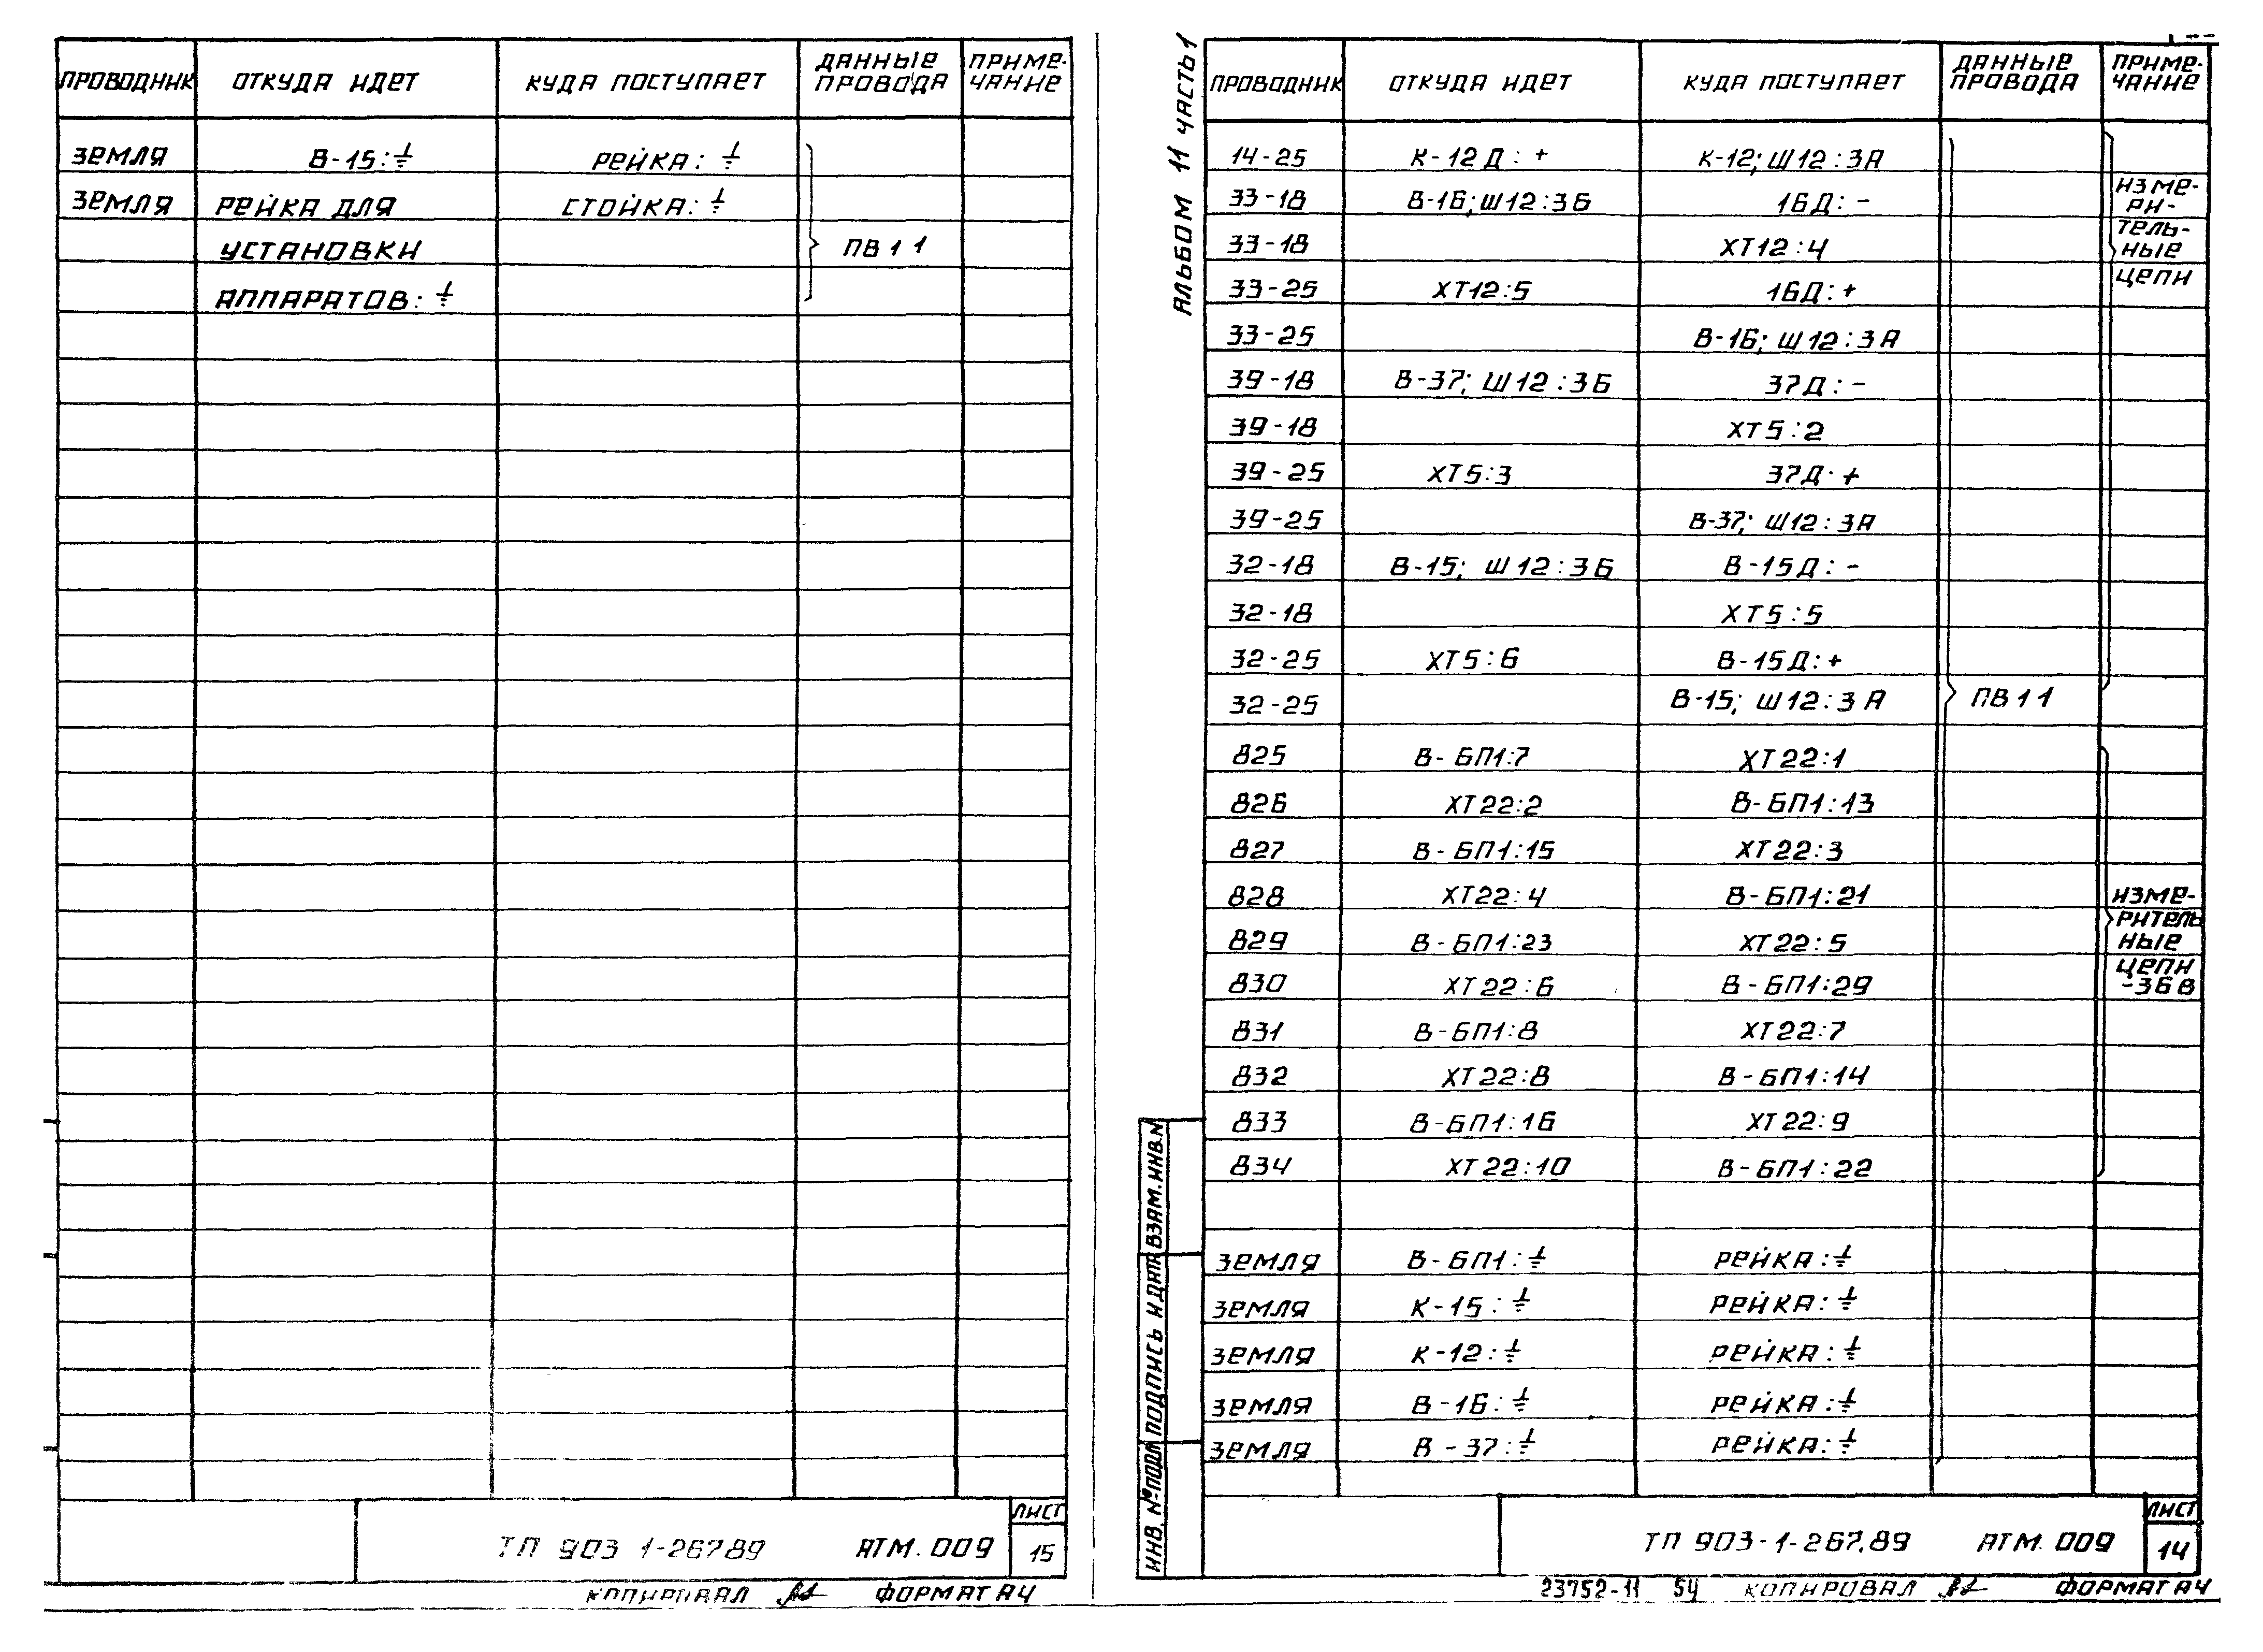 ПРОВОДНИК ОТКУДА ИДЕТ КУДА ПОСТУПАЕТ ДАННЫЕ ПРОВОДА ПРИМЕ-ЧАНИЕ
ЗЕМЛЯ В-15:⏚ РЕЙКА:⏚
ЗЕМЛЯ РЕЙКА ДЛЯ СТОЙКА:⏚
УСТАНОВКИ ПВ1 1
АППАРАТОВ:⏚
ТП 903 1-267.89 АТМ.009 ЛИСТ 15
КОПИРОВАЛ ФОРМАТ А4
АЛЬБОМ 11 ЧАСТЬ 1
ПРОВОДНИК ОТКУДА ИДЕТ КУДА ПОСТУПАЕТ ДАННЫЕ ПРОВОДА ПРИМЕ-ЧАНИЕ
14-25 К-12Д:+ К-12;Ш12:3А
33-18 В-16;Ш12:3Б 16Д:- ИЗМЕ-РИ-
33-18 ХТ12:4 ТЕЛЬ-НЫЕ
33-25 ХТ12:5 16Д:+ ЦЕПИ
33-25 В-16;Ш12:3А
39-18 В-37;Ш12:3Б 37Д:-
39-18 ХТ5:2
39-25 ХТ5:3 37Д:+
39-25 В-37;Ш12:3А
32-18 В-15;Ш12:3Б В-15Д:-
32-18 ХТ5:5
32-25 ХТ5:6 В-15Д:+
32-25 В-15;Ш12:3А ПВ1 1
825 В-БП1:7 ХТ22:1
826 ХТ22:2 В-БП1:13
827 В-БП1:15 ХТ22:3
828 ХТ22:4 В-БП1:21 ИЗМЕ-
829 В-БП1:23 ХТ22:5 РИТЕЛЬ НЫЕ
830 ХТ22:6 В-БП1:29 ЦЕПИ -36В
831 В-БП1:8 ХТ22:7
832 ХТ22:8 В-БП1:14
833 В-БП1:16 ХТ22:9
834 ХТ22:10 В-БП1:22
ЗЕМЛЯ В-БП1:⏚ РЕЙКА:⏚
ЗЕМЛЯ К-15:⏚ РЕЙКА:⏚
ЗЕМЛЯ К-12:⏚ РЕЙКА:⏚
ЗЕМЛЯ В-16:⏚ РЕЙКА:⏚
ЗЕМЛЯ В-37:⏚ РЕЙКА:⏚
ИНВ.№ПОДЛ ПОДПИСЬ И ДАТА ВЗАМ.ИНВ.№
ТП 903-1-267.89 АТМ.009 ЛИСТ 14
23752-11 54 КОПИРОВАЛ ФОРМАТ А4